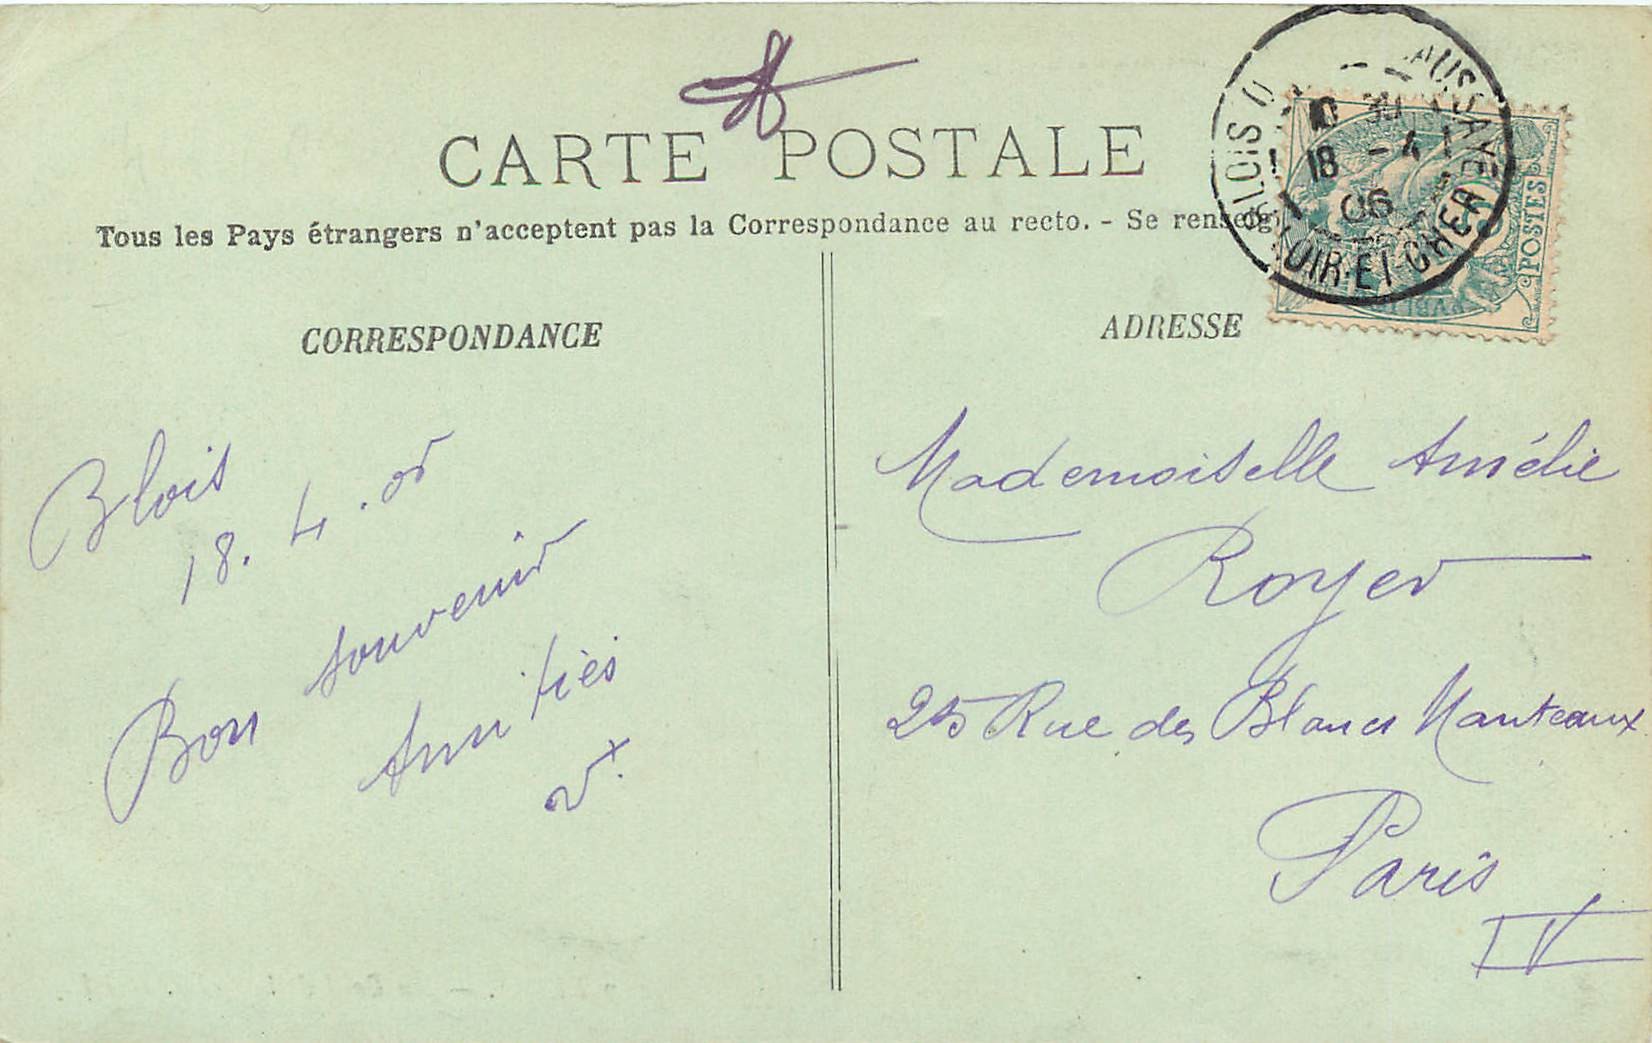 CARTE POSTALE
Tous les Pays étrangers n'acceptent pas la Correspondance au recto. - Se renseig
CORRESPONDANCE
ADRESSE
BLOIS
LOIR-ET-CHER
18 - 4
06
POSTES
Blois
18. 4. 06
Bon souvenir
Amitiés
Mademoiselle Amélie
Royer
25 Rue des Blancs Manteaux
Paris
IV